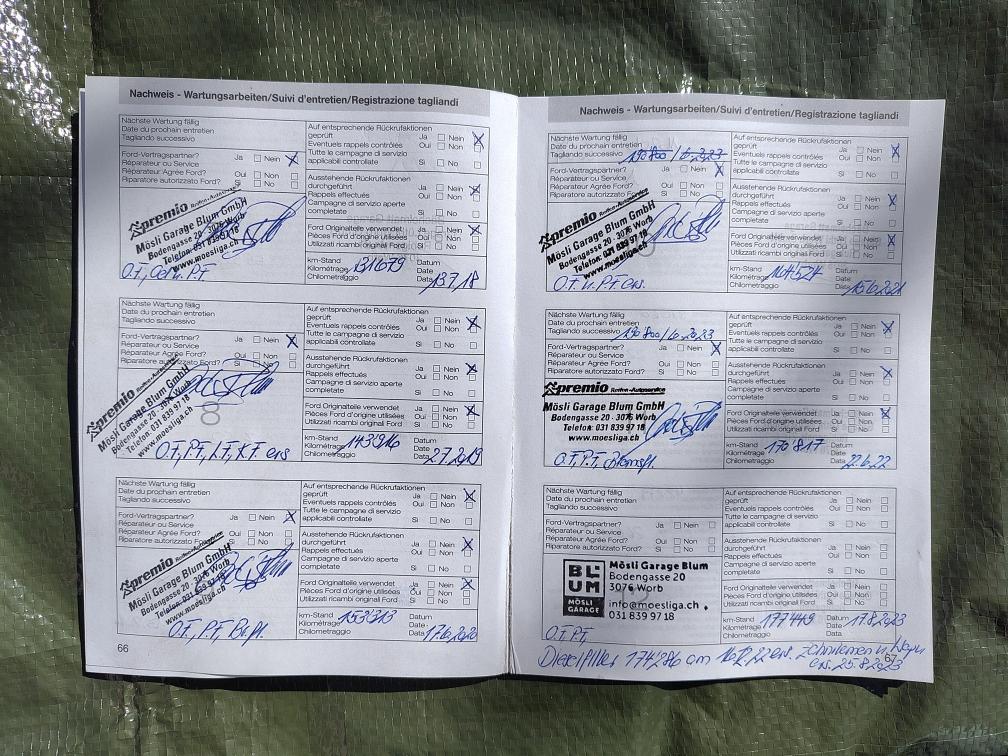 Nachweis - Wartungsarbeiten/Suivi d'entretien/Registrazione tagliandi
Nächste Wartung fällig
Date du prochain entretien
Tagliando successivo
Ford-Vertragspartner? Ja Nein
Réparateur ou Service
Réparateur Agrée Ford? Oui Non
Riparatore autorizzato Ford? Si No
premio Reifen+Autoservice
Mösli Garage Blum GmbH
Bodengasse 20 - 3076 Worb
Telefon: 031 839 97 18
www.moesliga.ch
Auf entsprechende Rückrufaktionen
geprüft Ja Nein
Eventuels rappels contrôlés Oui Non
Tutte le campagne di servizio
applicabili controllate Si No
Ausstehende Rückrufaktionen
durchgeführt Ja Nein
Rappels effectués Oui Non
Campagne di servizio aperte
completate Si No
Ford Originalteile verwendet Ja Nein
Pièces Ford d'origine utilisées Oui Non
Utilizzati ricambi originali Ford Si No
km-Stand Datum
Kilométrage 131679 Date
Chilometraggio Data 13.7.18
Nächste Wartung fällig
Date du prochain entretien
Tagliando successivo
Ford-Vertragspartner? Ja Nein
Réparateur ou Service
Réparateur Agrée Ford? Oui Non
Riparatore autorizzato Ford? Si No
premio Reifen+Autoservice
Mösli Garage Blum GmbH
Bodengasse 20 - 3076 Worb
Telefon: 031 839 97 18
www.moesliga.ch
O.T, P.T, I.T, K.T ers
Auf entsprechende Rückrufaktionen
geprüft Ja Nein
Eventuels rappels contrôlés Oui Non
Tutte le campagne di servizio
applicabili controllate Si No
Ausstehende Rückrufaktionen
durchgeführt Ja Nein
Rappels effectués Oui Non
Campagne di servizio aperte
completate Si No
Ford Originalteile verwendet Ja Nein
Pièces Ford d'origine utilisées Oui Non
Utilizzati ricambi originali Ford Si No
km-Stand Datum
Kilométrage Date
Chilometraggio Data 2.7.2019
Nächste Wartung fällig
Date du prochain entretien
Tagliando successivo
Ford-Vertragspartner? Ja Nein
Réparateur ou Service
Réparateur Agrée Ford? Oui Non
Riparatore autorizzato Ford? Si No
premio Reifen+Autoservice
Mösli Garage Blum GmbH
Bodengasse 20 - 3076 Worb
Telefon: 031 839 97 18
www.moesliga.ch
O.T, P.T,
Auf entsprechende Rückrufaktionen
geprüft Ja Nein
Eventuels rappels contrôlés Oui Non
Tutte le campagne di servizio
applicabili controllate Si No
Ausstehende Rückrufaktionen
durchgeführt Ja Nein
Rappels effectués Oui Non
Campagne di servizio aperte
completate Si No
Ford Originalteile verwendet Ja Nein
Pièces Ford d'origine utilisées Oui Non
Utilizzati ricambi originali Ford Si No
km-Stand Datum
Kilométrage 153213 Date
Chilometraggio Data 17.6.2020
66
Nachweis - Wartungsarbeiten/Suivi d'entretien/Registrazione tagliandi
Nächste Wartung fällig
Date du prochain entretien
Tagliando successivo 190'800 / 6.2023
Ford-Vertragspartner? Ja Nein
Réparateur ou Service
Réparateur Agrée Ford? Oui Non
Riparatore autorizzato Ford? Si No
premio Reifen+Autoservice
Mösli Garage Blum GmbH
Bodengasse 20 - 3076 Worb
Telefon: 031 839 97 18
www.moesliga.ch
O.T. u. P.T ers.
Auf entsprechende Rückrufaktionen
geprüft Ja Nein
Eventuels rappels contrôlés Oui Non
Tutte le campagne di servizio
applicabili controllate Si No
Ausstehende Rückrufaktionen
durchgeführt Ja Nein
Rappels effectués Oui Non
Campagne di servizio aperte
completate Si No
Ford Originalteile verwendet Ja Nein
Pièces Ford d'origine utilisées Oui Non
Utilizzati ricambi originali Ford Si No
km-Stand Datum
Kilométrage Date
Chilometraggio Data 15.6.2021
Nächste Wartung fällig
Date du prochain entretien
Tagliando successivo 190'800 / 6.2023
Ford-Vertragspartner? Ja Nein
Réparateur ou Service
Réparateur Agrée Ford? Oui Non
Riparatore autorizzato Ford? Si No
premio Reifen+Autoservice
Mösli Garage Blum GmbH
Bodengasse 20 - 3076 Worb
Telefon: 031 839 97 18
www.moesliga.ch
O.T. P.T.
Auf entsprechende Rückrufaktionen
geprüft Ja Nein
Eventuels rappels contrôlés Oui Non
Tutte le campagne di servizio
applicabili controllate Si No
Ausstehende Rückrufaktionen
durchgeführt Ja Nein
Rappels effectués Oui Non
Campagne di servizio aperte
completate Si No
Ford Originalteile verwendet Ja Nein
Pièces Ford d'origine utilisées Oui Non
Utilizzati ricambi originali Ford Si No
km-Stand Datum
Kilométrage 170'817 Date
Chilometraggio Data 22.6.22
Nächste Wartung fällig
Date du prochain entretien
Tagliando successivo
Ford-Vertragspartner? Ja Nein
Réparateur ou Service
Réparateur Agrée Ford? Oui Non
Riparatore autorizzato Ford? Si No
BLUM
MÖSLI
GARAGE
Mösli Garage Blum
Bodengasse 20
3076 Worb
info@moesliga.ch
031 839 97 18
O.T. P.T.
Auf entsprechende Rückrufaktionen
geprüft Ja Nein
Eventuels rappels contrôlés Oui Non
Tutte le campagne di servizio
applicabili controllate Si No
Ausstehende Rückrufaktionen
durchgeführt Ja Nein
Rappels effectués Oui Non
Campagne di servizio aperte
completate Si No
Ford Originalteile verwendet Ja Nein
Pièces Ford d'origine utilisées Oui Non
Utilizzati ricambi originali Ford Si No
km-Stand Datum
Kilométrage 177'449 Date 17.8.2023
Chilometraggio Data
Dieselfilter 174'286 am 16.12.22 ers. Zahnriemen u. Wapu
ers. 25.8.2023
67